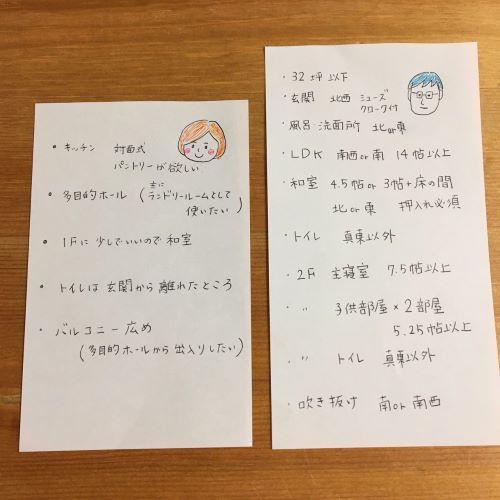 • キッチン 対面式
パントリーが欲しい
• 多目的ホール (主に
ランドリールームとして
使いたい)
• 1Fに少しでいいので 和室
• トイレは玄関から離れたところ
• バルコニー広め
(多目的ホールから出入りしたい)
・32坪以下
・玄関 北西 シューズ
クローク付
・風呂 洗面所 北or東
・LDK 南西or南 14帖以上
・和室 4.5帖or3帖+床の間
北or東 押入れ必須
・トイレ 真東以外
・2F 主寝室 7.5帖以上
・〃 子供部屋×2部屋
5.25帖以上
・〃 トイレ 真東以外
・吹き抜け 南or南西